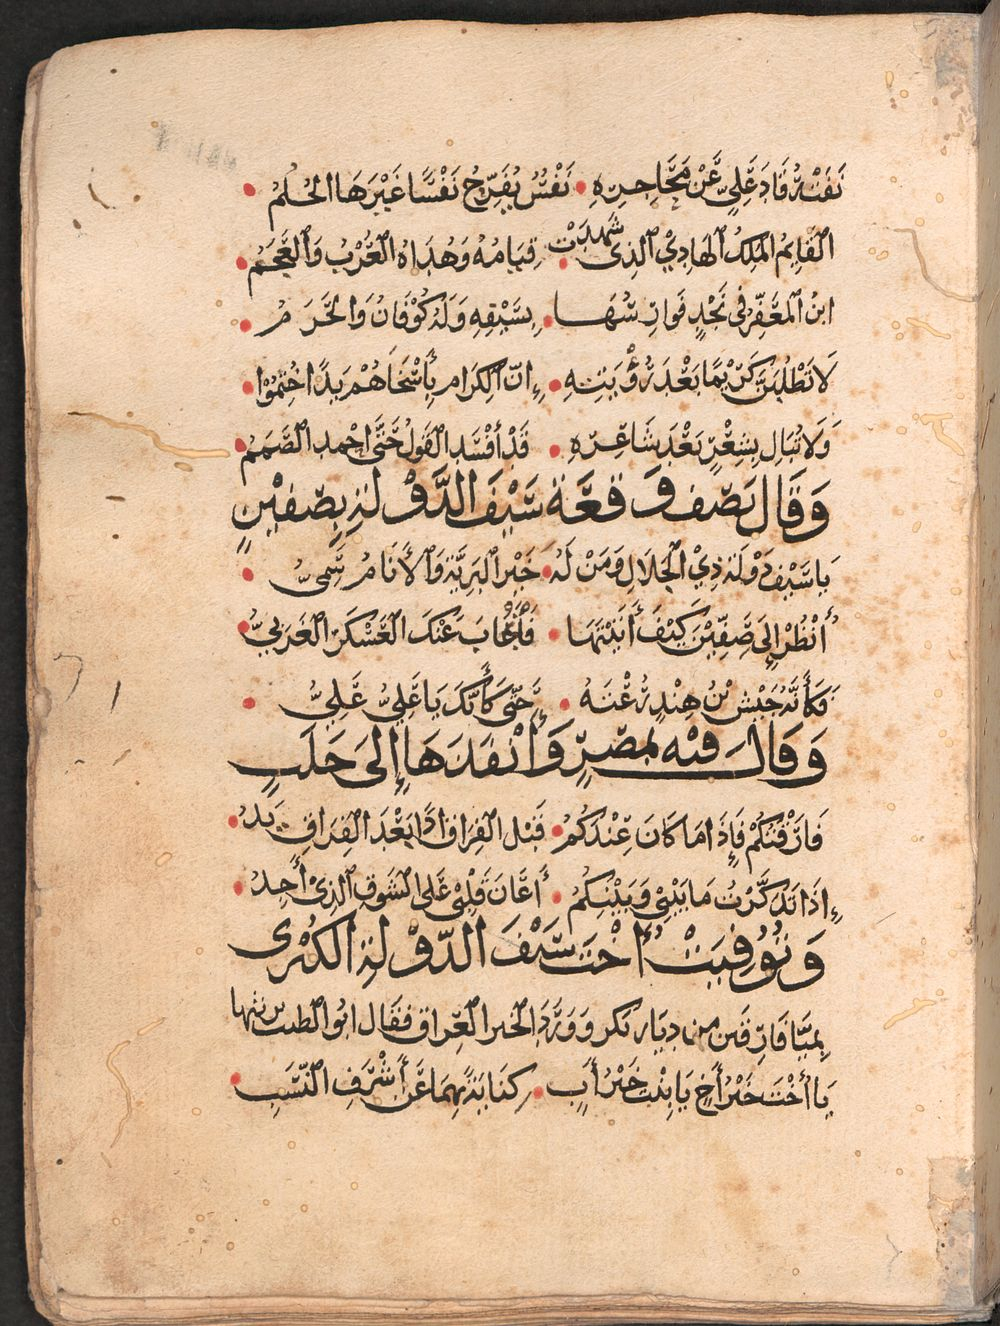 نَفَتْ رُقَادَ عَلِيٍّ عَنْ مَحَاجِرِهِ • نَفْسٌ يُفَرِّحُ نَفْسًا غَيْرَهَا الحُلُمُ •
القَائِمُ المَلِكُ الهَادِيْ الَّذِي شَهِدَتْ • قِيَامَهُ وَهُدَاهُ العُرْبُ وَالعَجَمُ •
ابنُ المُعَفِّرِ فِي نَجْدٍ فَوَارِسُهَا • بِسَيْفِهِ وَلَهُ كُوْفَانُ وَالحَرَمُ •
لَا تَطْلُبَنَّ كَرِيْمًا بَعْدَ رُؤْيَتِهِ • إِنَّ الكِرَامَ بِأَسْخَاهُمْ يَدًا خُتِمُوا •
وَلَا تُبَالِ بِشِعْرٍ بَعْدَ شَاعِرِهِ • قَدْ أُفْسِدَ القَوْلُ حَتَّى احْمِدَ الصَّمَمُ •
وَقَالَ يَصِفُ وَقْعَةَ سَيْفِ الدَّوْلَةِ بِصِفِّيْنٍ
يَا سَيْفَ دَوْلَةِ ذِيْ الجَلَالِ وَمَنْ لَهُ • خَيْرُ البَرِيَّةِ وَالأَنَامُ سَمِيُّ •
أُنْظُرْ إِلَى صِفِّيْنَ كَيْفَ أَتَيْتَهَا • فَانْجَابَ عَنْكَ العَسْكَرُ الغَرَبِيُّ •
فَكَأَنَّهُ جَيْشُ بْنُ هِنْدٍ رُعْتَهُ • حَتَّى كَأَنَّكَ يَا عَلِيُّ عَلِيُّ •
وَقَالَ فِيْهِ بِمِصْرٍ وَأَنْفَدَهَا إِلَى حَلَبٍ
فَارَقْتُكُمْ فَإِذَا مَا كَانَ عِنْدَكُمُ • قَبْلَ الفِرَاقِ اذًا بَعْدَ الفِرَاقِ يَدُ •
إِذَا تَذَكَّرْتُ مَا بَيْنِيْ وَبَيْنِكُمُ • أَعَانَ قَلْبِيْ عَلَى الشَّوْقِ الَّذِيْ أَجِدُ •
وَتُوُفِّيَتْ أُخْتُ سَيْفِ الدَّوْلَةِ الكُبْرَى
بِمَيَّافَارِقِيْنَ مِنْ دِيَارِ بَكْرٍ وَوَرَدَ الخَبَرُ العِرَاقَ فَقَالَ ابُو الطَيِّبِ يَرْثِيْهَا
يَا أُخْتَ خَيْرِ أَخٍ يَا بِنْتَ خَيْرِ أَبٍ • كِنَايَةً بِهِمَا عَنْ أَشْرَفِ النَّسَبِ •